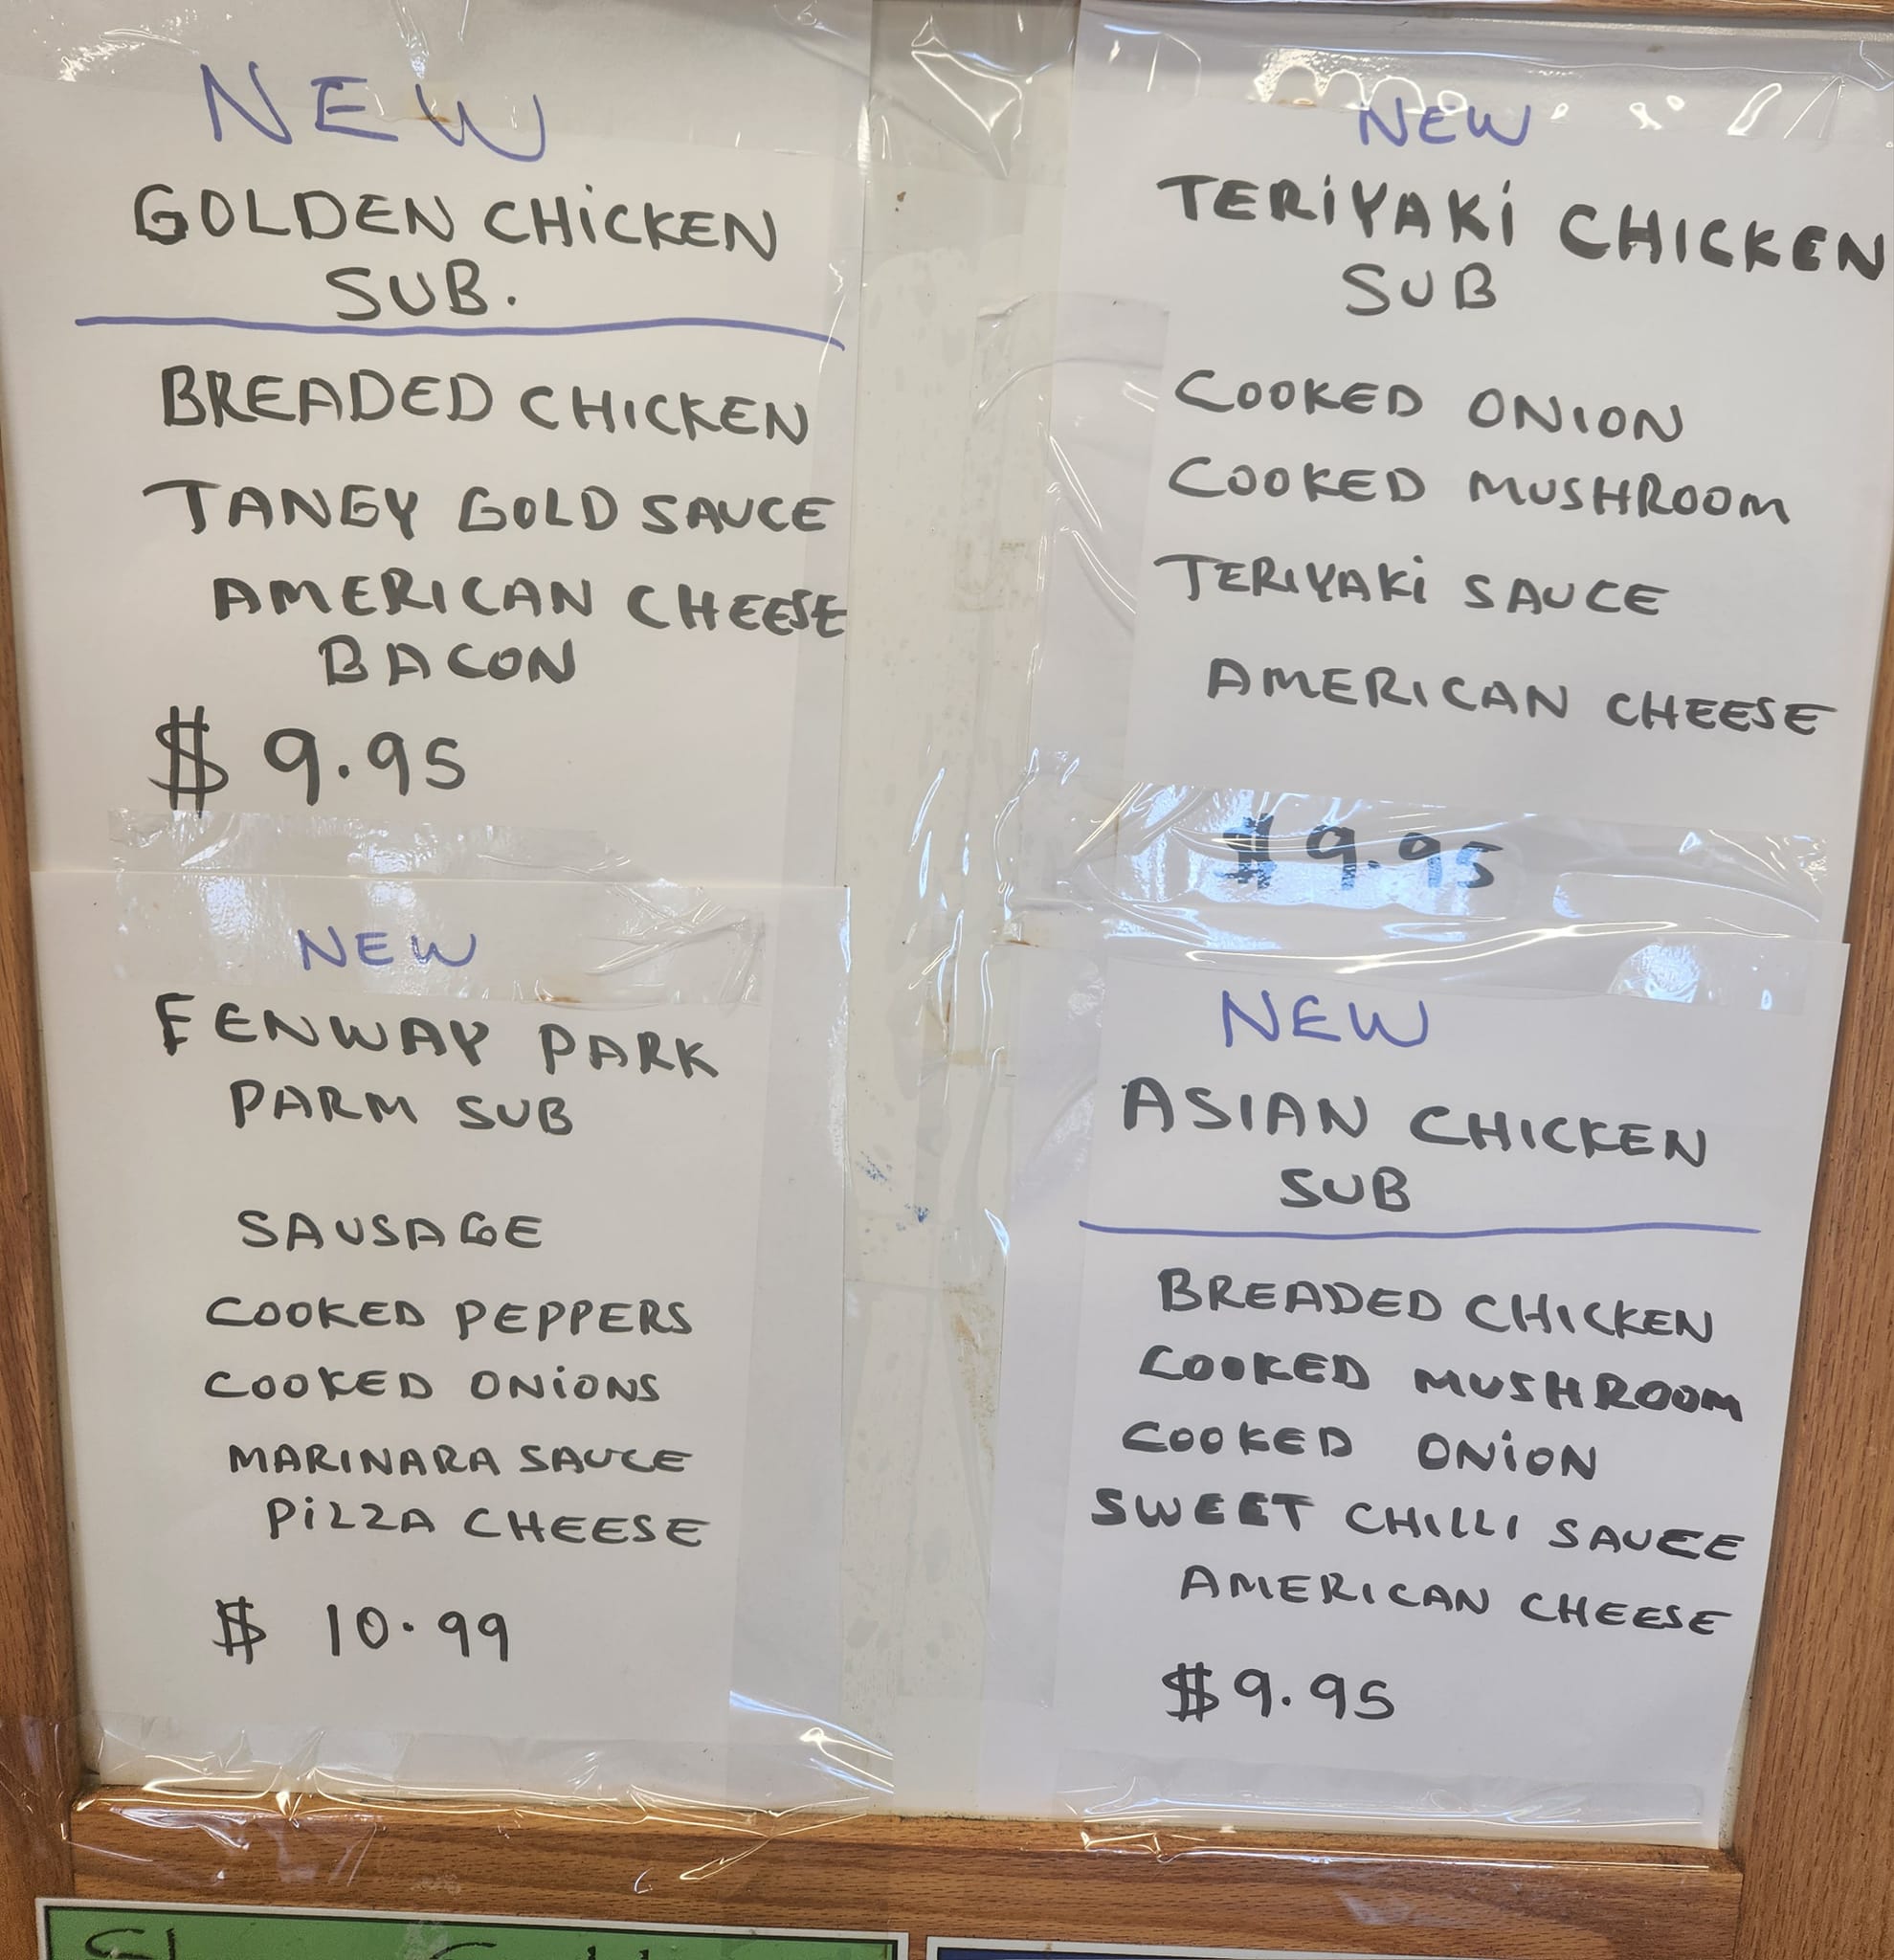 NEW
GOLDEN CHiCKEN
SUB.
BREADED CHICKEN
TANGY GOLD SAUCE
AMERICAN CHEESE
BACON
$ 9.95
NEW
TERiYAKi CHICKEN
SUB
COOKED ONION
COOKED MUSHROOM
TERIYAKi SAUCE
AMERICAN CHEESE
$ 9.95
NEW
FENWAY PARK
PARM SUB
SAUSAGE
COOKED PEPPERS
COOKED ONiONS
MARINARA SAUCE
PiZZA CHEESE
$ 10.99
NEW
ASIAN CHICKEN
SUB
BREADED CHICKEN
COOKED MUSHROOM
COOKED ONiON
SWEET CHILLI SAUCE
AMERICAN CHEESE
$9.95